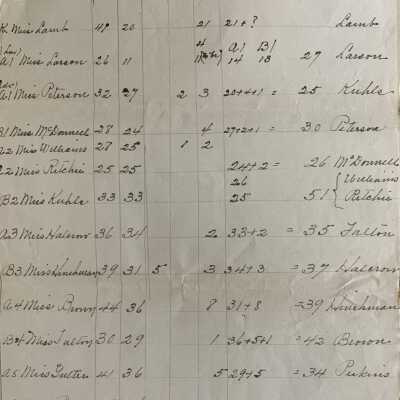 K Miss Lamb 49 20 21 21+? Lamb
A1 Miss Larson 26 11 4 A1 B1 14 13 27 Larson
A1 Miss Peterson 32 27 2 3 20+4+1 = 25 Kuhls
B1 Miss McDonnell 28 24 4 27+2+1 = 30 Peterson
A2 Miss Williams 28 25 1 2
B2 Miss Ritchie 25 25 24+2 = 26 McDonnell
26 Williams
B2 Miss Kuhls 33 33 25 51 { Ritchie
A3 Miss Halcrow 36 34 2 33+2 = 35 Falton
B3 Miss Hinchman 39 31 5 3 34+3 = 37 Halcrow
A4 Miss Brown 44 36 8 31+8 = 39 Hinchman
B4 Miss Falton 30 29 1 36+5+1 = 42 Brown
A5 Miss 41 36 5 29+5 = 34 Perkins